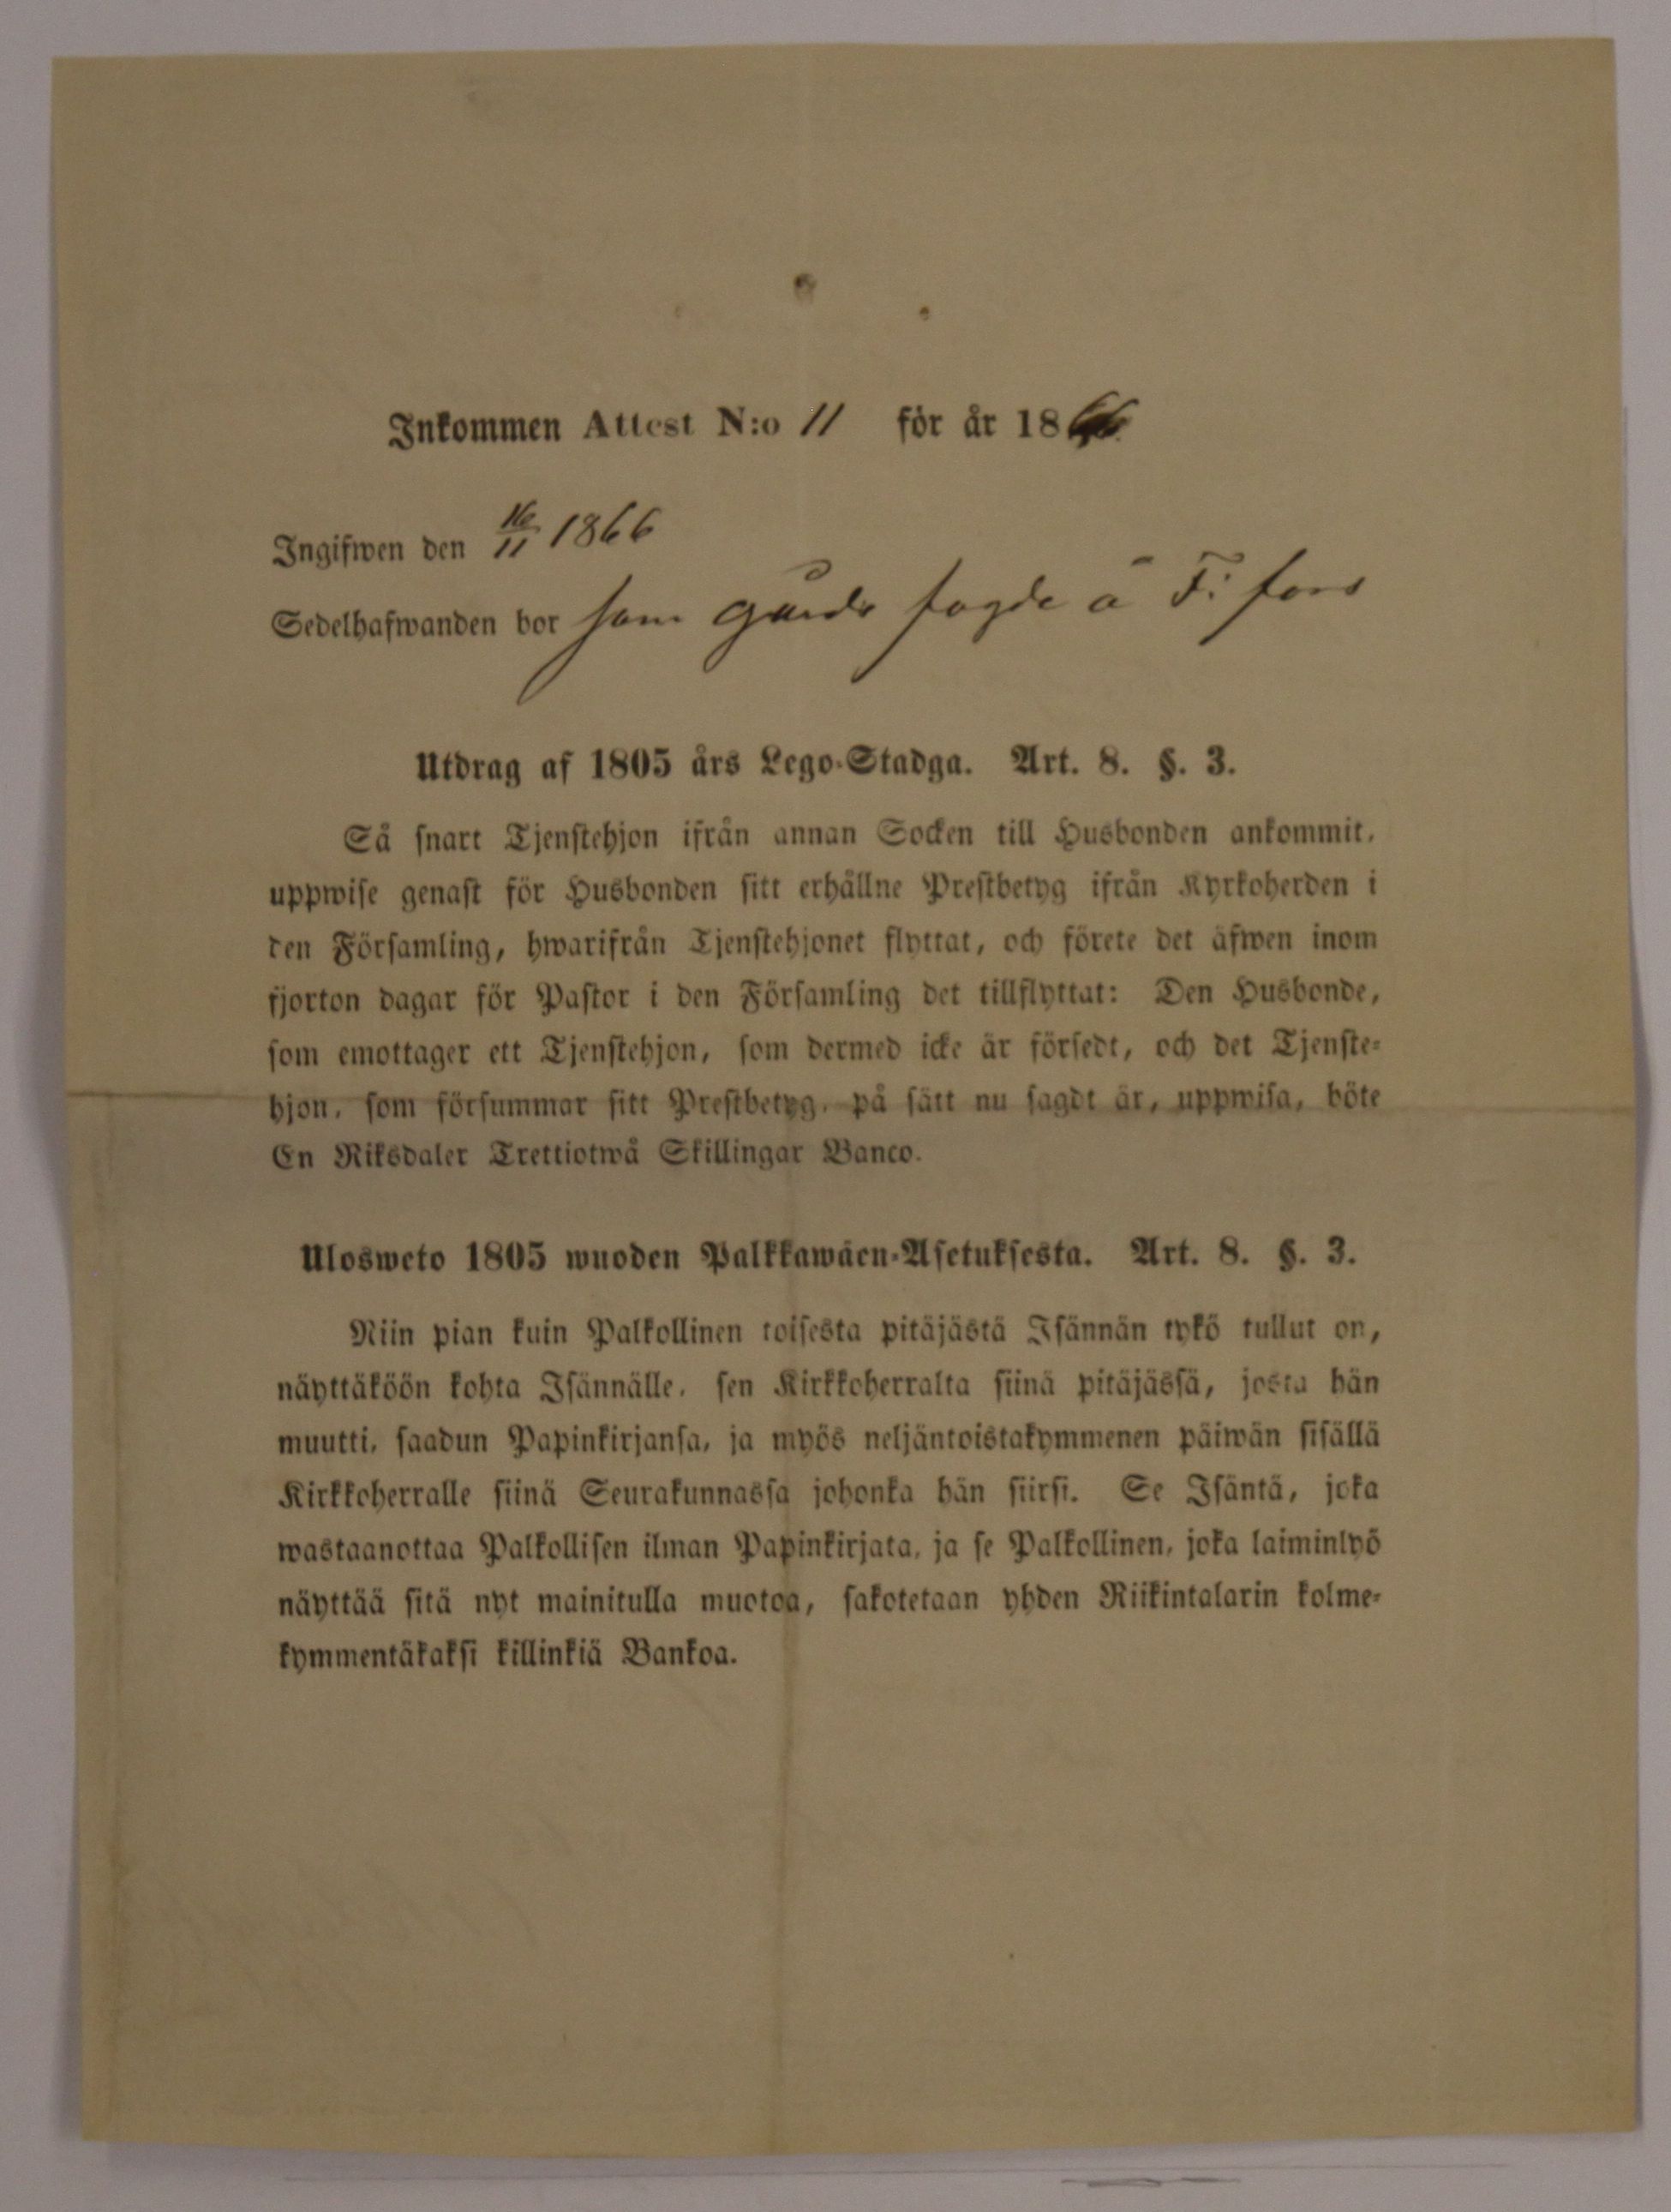 Inkommen Attest N:o 11 för år 1866.
Ingifwen den 16/11 1866
Sedelhafwanden bor som gårds fogde å F: fors
Utdrag af 1805 års Lego-Stadga. Art. 8. §. 3.
Så snart Tjenstehjon ifrån annan Socken till Husbonden ankommit,
uppwise genast för Husbonden sitt erhållne Prestbetyg ifrån Kyrkoherden i
den Församling, hwarifrån Tjenstehjonet flyttat, och förete det äfwen inom
fjorton dagar för Pastor i den Församling det tillflyttat: Den Husbonde,
som emottager ett Tjenstehjon, som dermed icke är försedt, och det Tjenste-
hjon, som försummar sitt Prestbetyg, på sätt nu sagdt är, uppwisa, böte
En Riksdaler Trettiotwå Skillingar Banco.
Ulosweto 1805 wuoden Palkkawäen-Asetuksesta. Art. 8. §. 3.
Niin pian kuin Palkollinen toisesta pitäjästä Isännän tykö tullut on,
näyttäköön kohta Isännälle, sen Kirkkoherralta siinä pitäjässä, josta hän
muutti, saadun Papinkirjansa, ja myös neljäntoistakymmenen päiwän sisällä
Kirkkoherralle siinä Seurakunnassa johonka hän siirsi. Se Isäntä, joka
wastaanottaa Palkollisen ilman Papinkirjata, ja se Palkollinen, joka laiminlyö
näyttää sitä nyt mainitulla muotoa, sakotetaan yhden Riikintalarin kolme-
kymmentäkaksi killinkiä Bankoa.